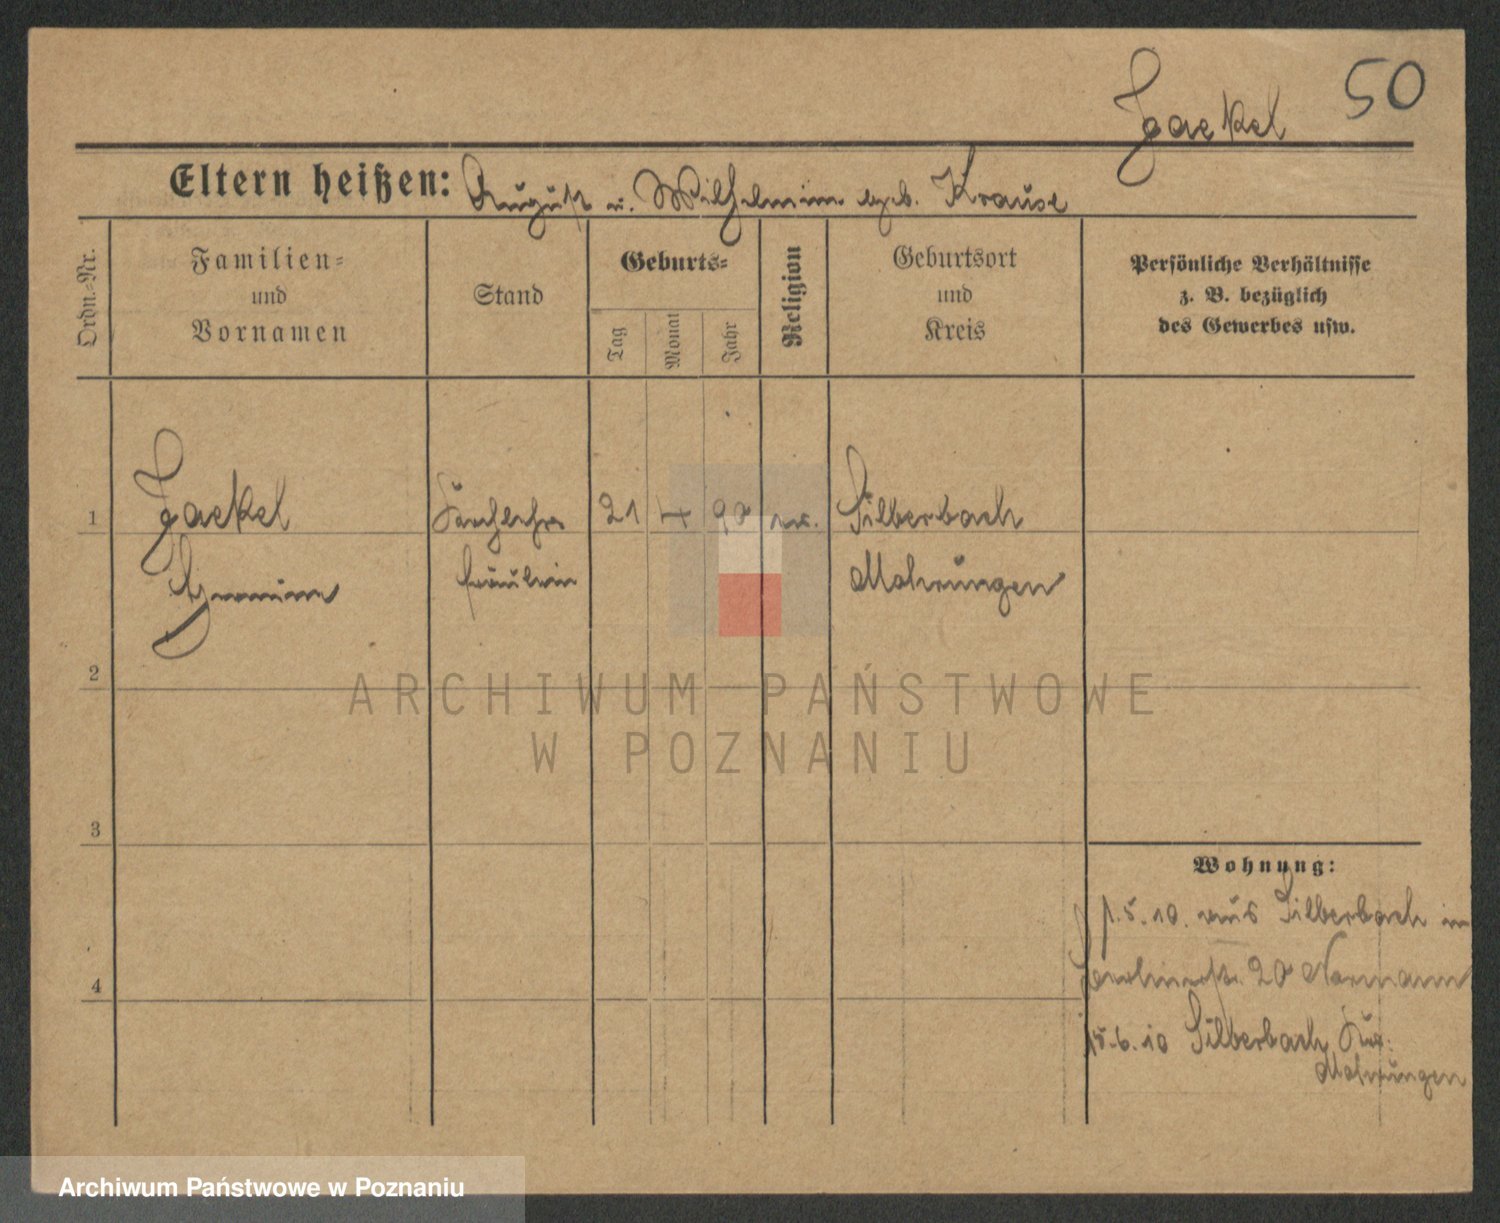 50
Jaekel
Eltern heißen: August u. Wilhelmine geb. Krause
Ordn.-Nr.
Familien-
und
Vornamen
Stand
Geburts-
Tag
Monat
Jahr
Religion
Geburtsort
und
Kreis
Persönliche Verhältnisse
z. B. bezüglich
des Gewerbes usw.
1
Jaekel
21 4 90
Silberbach
fräulein
Mohrungen
2
ARCHIWUM PAŃSTWOWE
W POZNANIU
3
Wohnung:
1.5.10. aus Silberbach in
20 Normann
4
15.6.10 Silberbach
Mohrungen
Archiwum Państwowe w Poznaniu